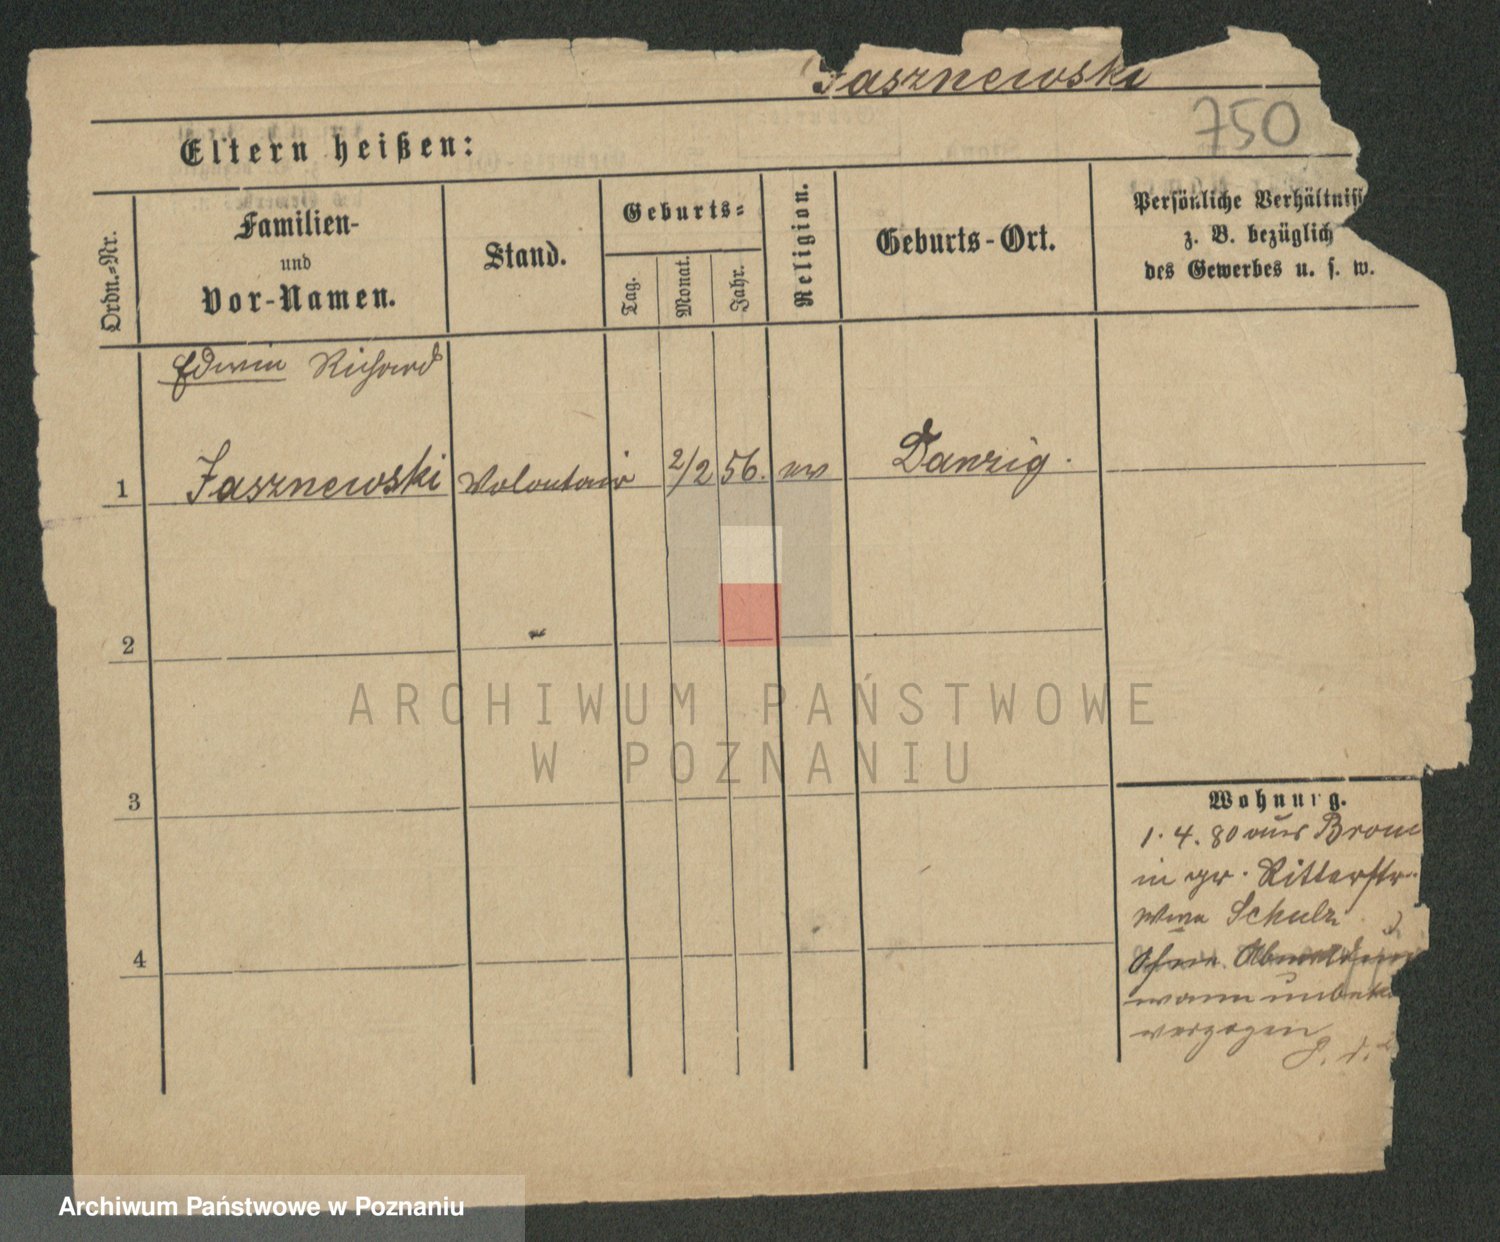 Jasznewski
750
Eltern heißen:
Ordn.-Nr.
Familien-
und
Vor-Namen.
Stand.
Geburts-
Tag.
Monat.
Jahr.
Religion.
Geburts-Ort.
Persönliche Verhältniss
z. B. bezüglich
des Gewerbes u. s. w.
Edwin Richard
1 Jasznewski Volontair 2/2 56. ev Danzig.
2
3
4
ARCHIWUM PAŃSTWOWE
W POZNANIU
Wohnung.
1. 4. 80 aus Brom
in gr. Ritterstr.
Wwe Schulz
Ohne Abmeldung
wann unbek
verzogen
Archiwum Państwowe w Poznaniu